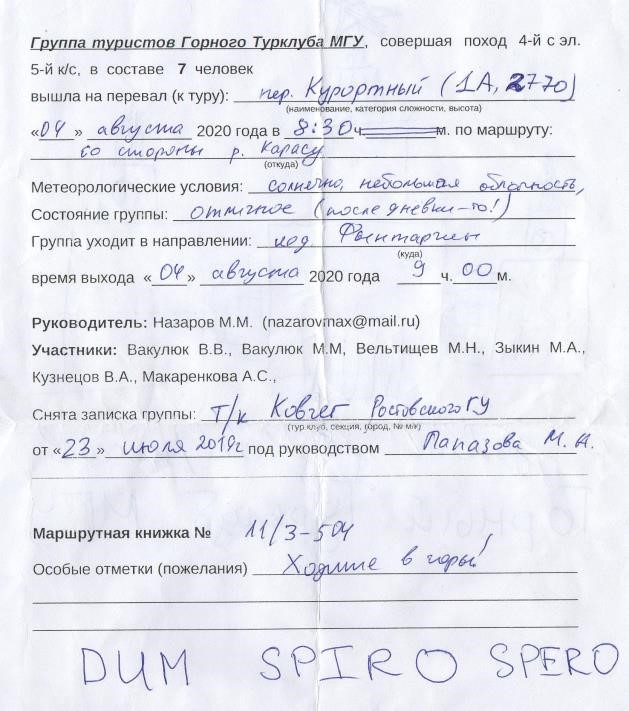 Группа туристов Горного Турклуба МГУ, совершая поход 4-й с эл.
5-й к/с, в составе 7 человек
вышла на перевал (к туру): пер. Курортный (1А, 2770)
(наименование, категория сложности, высота)
«04» августа 2020 года в 8:30 ч м. по маршруту:
со стороны р. Карасу
(откуда)
Метеорологические условия: солнечно, небольшая облачность,
Состояние группы: отличное (после дневки-то!)
Группа уходит в направлении: лед. Фытнаргин
(куда)
время выхода «04» августа 2020 года 9 ч. 00 м.
Руководитель: Назаров М.М. (nazarovmax@mail.ru)
Участники: Вакулюк В.В., Вакулюк М.М, Вельтищев М.Н., Зыкин М.А.,
Кузнецов В.А., Макаренкова А.С.,
Снята записка группы: Т/к Ковчег Ростовского ГУ
(тур.клуб, секция, город, № м/к)
от «23» июля 2019г под руководством Папазова М. А.
Маршрутная книжка № 11/3-504
Особые отметки (пожелания) Ходите в горы!
DUM SPIRO SPERO